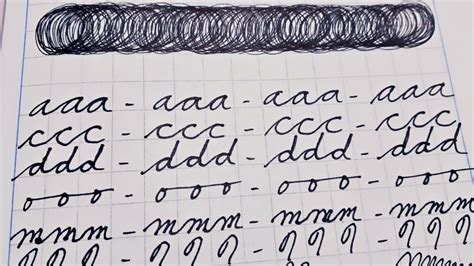 aaa - aaa - aaa - aaa
ccc - ccc - ccc - ccc
ddd - ddd - ddd - ddd
ooo - ooo - ooo - ooo
mmm - mmm - mmm - mmm